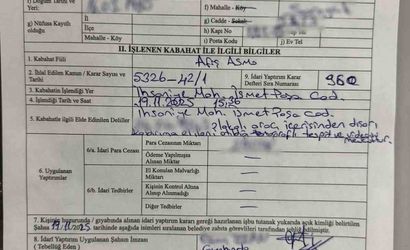 Yeri:
İl
Mahalle - Köy
g) Nüfusa Kayıtlı olduğu
İlçe
g) Cadde - Sokak
Mahalle - Köy
h) Kapı No
ı) Posta Kodu
j) Ev Tel
II. İŞLENEN KABAHAT İLE İLGİLİ BİLGİLER
1. Kabahat Fiili
Afiş Asma
2. İhlal Edilen Kanun / Karar Sayısı ve Tarihi
5326-42/1
9. İdari Yaptırım Karar Defteri Sıra Numarası
960
3. Kabahatin İşlendiği Yer
İhsaniye Mah. İsmet Paşa Cad.
4. İşlendiği Tarih ve Saat
19.11.2025 15:26
5. Kabahatle ilgili Elde Edinilen Deliller
İhsaniye Mah. İsmet Paşa Cad.
plakalı araç içerisinden dışarı
tespit ve videosu mevcuttur.
6. Uygulanan Yaptırımlar
6/a. İdari Para Cezası
Para Cezasının Miktarı
Ödeme Yapılmışsa Alınan Miktar
6/b. İdari Tedbirler
El Konulan Malvarlığı Miktarı
Kişinin Kontrol Altına Alınıp Alınmadığı
Diğer Tedbirler
7. Kişinin huzurunda / gıyabında alınan idari yaptırım kararı gereği hazırlanan işbu tutanak yukarıda açık kimliği belirtilen
Şahsa 19/11/2025 tarihinde aşağıda isimleri sıralanan belediye zabıta görevlileri tarafından tebliğ edilmiştir.
8. İdari Yaptırım Uygulanan Şahsın İmzası
( Tebellüğ Eden )
Gıyabında